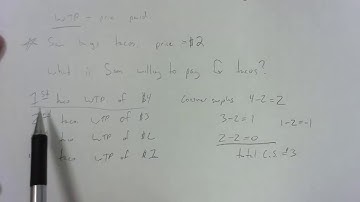 WTP - price paid
Sam buys tacos, price = $2
What is Sam willing to pay Q tacos?
1st taco WTP of $4
taco WTP of $3
taco WTP of $2
taco WTP of $1
Consumer surplus 4-2=2
3-2=1 1-2=-1
2-2=0
total C.S = $3